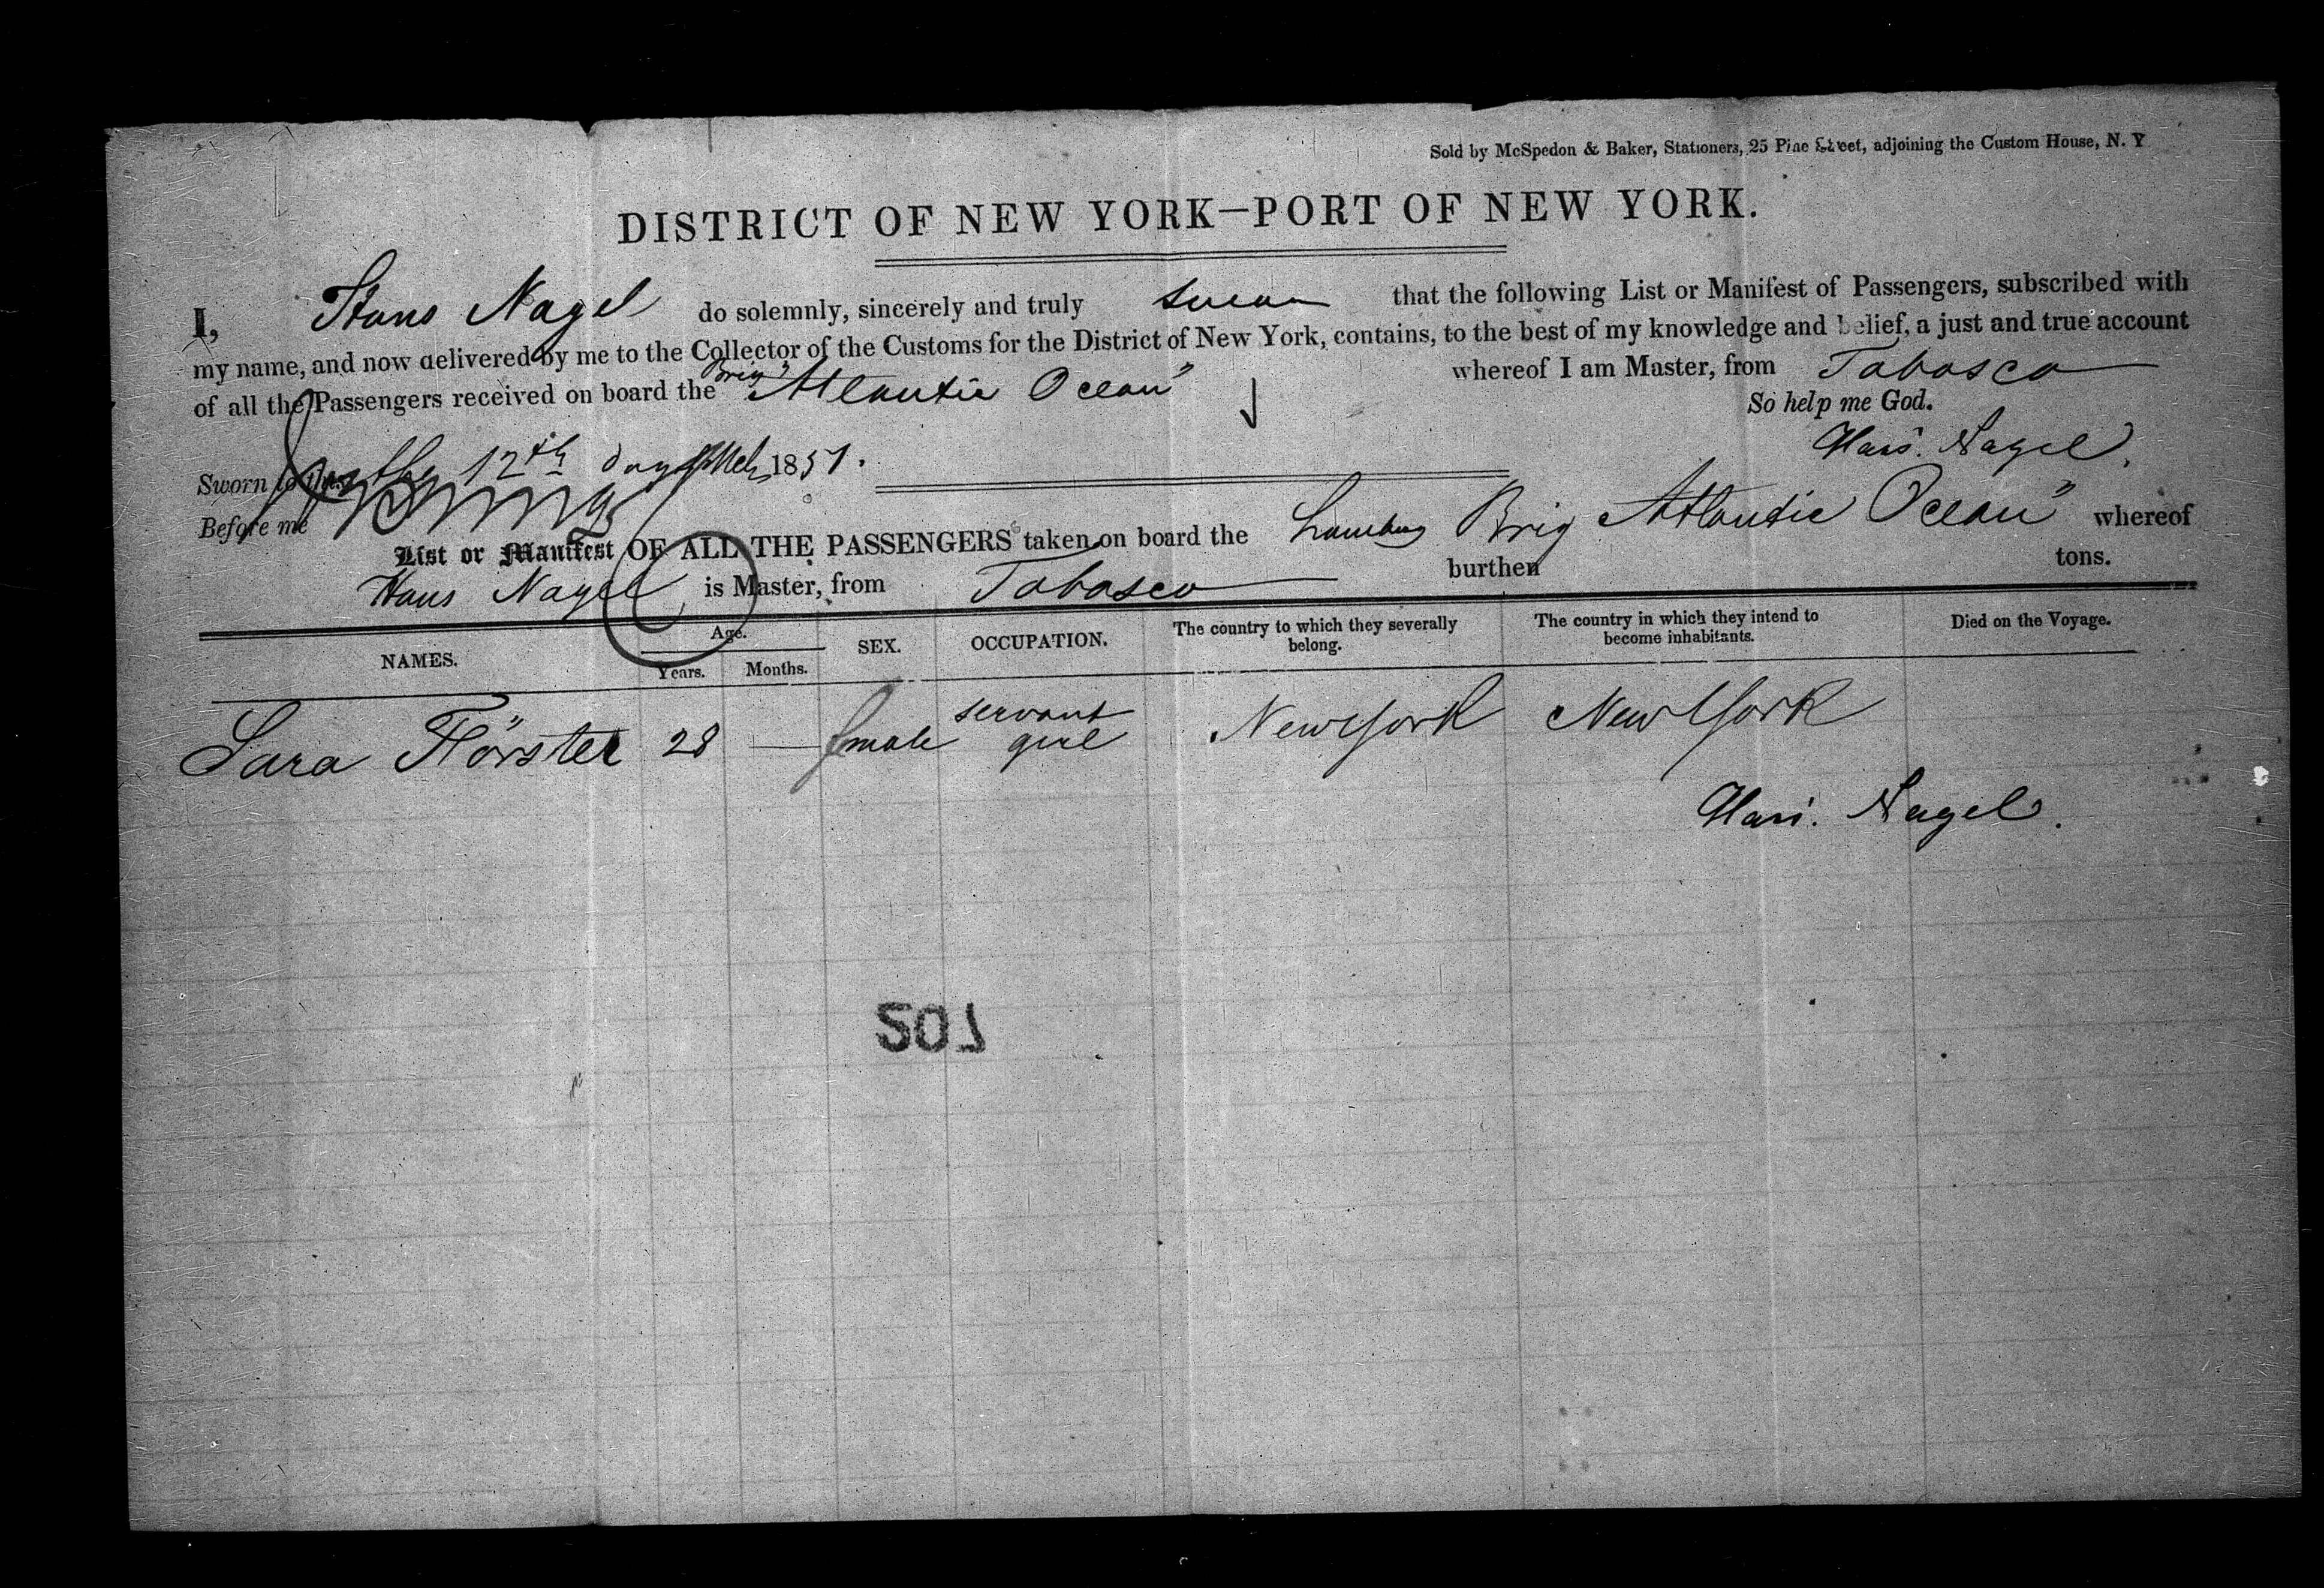 Sold by McSpedon & Baker, Stationers, 25 Pine Street, adjoining the Custom House, N. Y
DISTRICT OF NEW YORK—PORT OF NEW YORK.
I, Hans Nagel do solemnly, sincerely and truly swear that the following List or Manifest of Passengers, subscribed with
my name, and now delivered by me to the Collector of the Customs for the District of New York, contains, to the best of my knowledge and belief, a just and true account
of all the Passengers received on board the Brig "Atlantic Ocean" whereof I am Master, from Tabasco
So help me God.
Hans. Nagel.
Sworn to this 12th day Mch 1851.
Before me
List or Manifest OF ALL THE PASSENGERS taken on board the Hamburg Brig Atlantic Ocean" whereof
Hans Nagel is Master, from Tabasco burthen tons.
NAMES. Age. Years. Months. SEX. OCCUPATION. The country to which they severally belong. The country in which they intend to become inhabitants. Died on the Voyage.
Sara Förster 28 — female servant girl New York New York
Hans. Nagel.
102